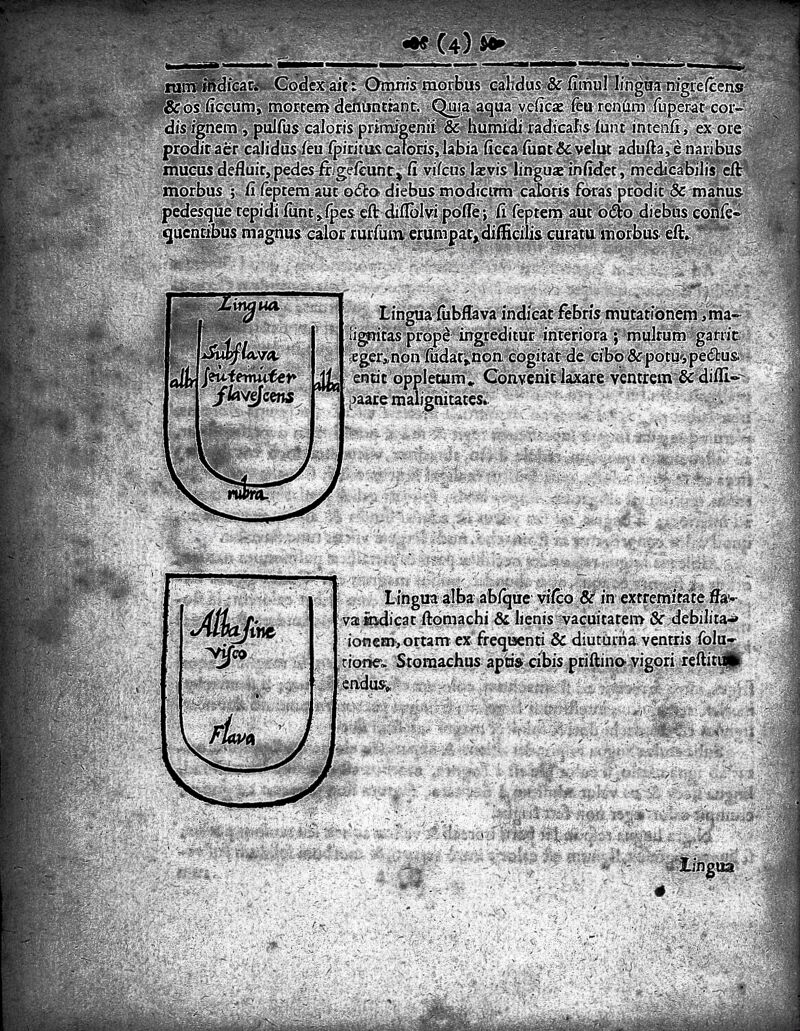 (4)
rum indicat. Codex ait: Omnis morbus calidus & simul lingua nigrescens
& os siccum, mortem denuntiant. Quia aqua vesicæ seu renum superat cor-
dis ignem, pulsus caloris primigenii & humidi radicalis sunt intensi, ex ore
prodit aër calidus seu spiritus caloris, labia sicca sunt & velut adusta, è naribus
mucus defluit, pedes frigescunt, si viscus lævis linguæ insidet, medicabilis est
morbus; si septem aut octo diebus modicum caloris foras prodit & manus
pedesque tepidi sunt, spes est dissolvi posse; si septem aut octo diebus conse-
quentibus magnus calor rursum erumpat, difficilis curatu morbus est.
Lingua
Subflava
seu temuter
flavescens
alba
alba
rubra
Lingua subflava indicat febris mutationem, ma-
lignitas propè ingreditur interiora; multum garrit
æger, non sudat, non cogitat de cibo & potu, pectus
entit oppletum. Convenit laxare ventrem & dissi-
paare malignitates.
Alba sine
visco
Flava
Lingua alba absque visco & in extremitate fla-
va indicat stomachi & lienis vacuitatem & debilita-
ionem, ortam ex frequenti & diuturna ventris solu-
tione. Stomachus aptis cibis pristino vigori restitu
endus.
Lingua